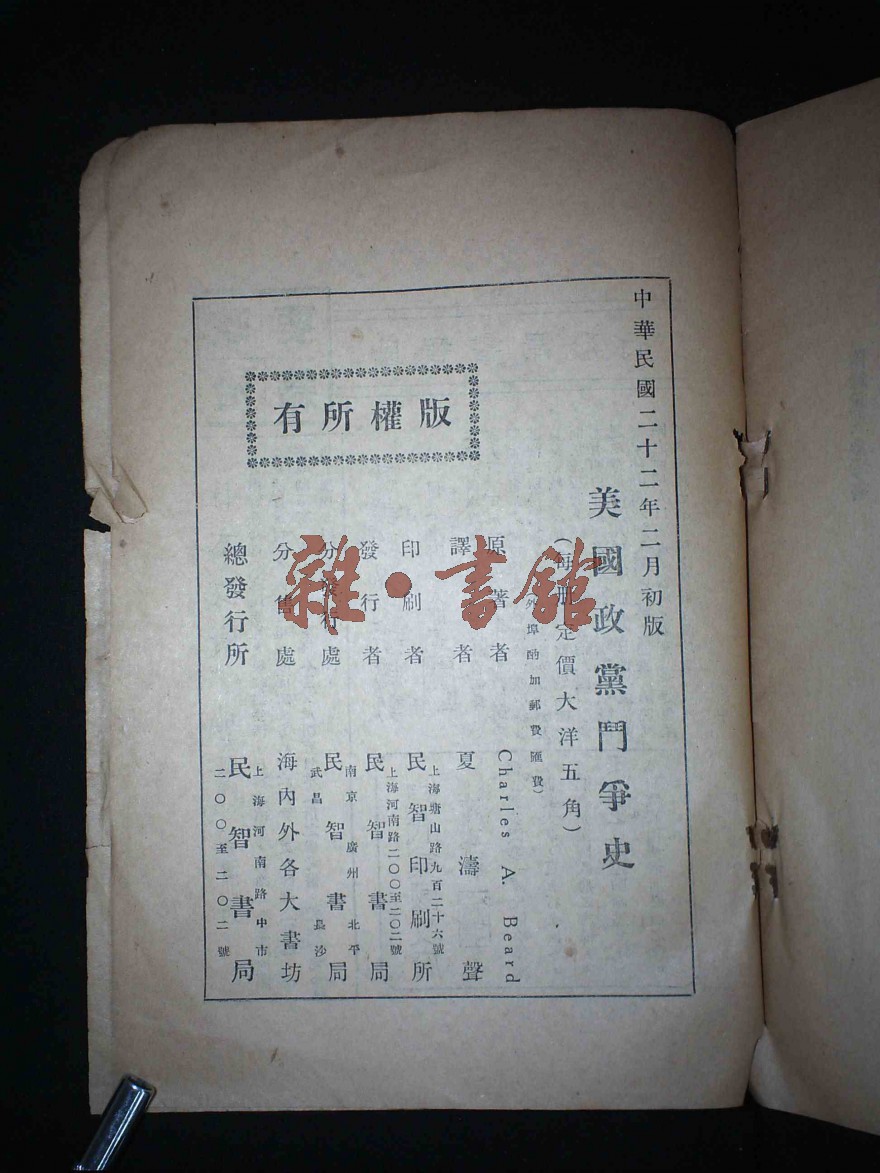 中華民國二十二年二月初版
美國政黨鬥爭史
(每册定價大洋五角)
外埠酌加郵費匯費)
原著者 Charlies A. Beard
譯者 夏濤聲
印刷者 民智印刷所
上海塘山路九百二十六號
發行者 民智書局
上海河南路二〇〇至二〇二號
分發行處 民智書局
南京 廣州 北平
武昌 長沙
分售處 海內外各大書坊
總發行所 民智書局
上海河南路中市
二〇〇至二〇二號
版權所有
雜·書館